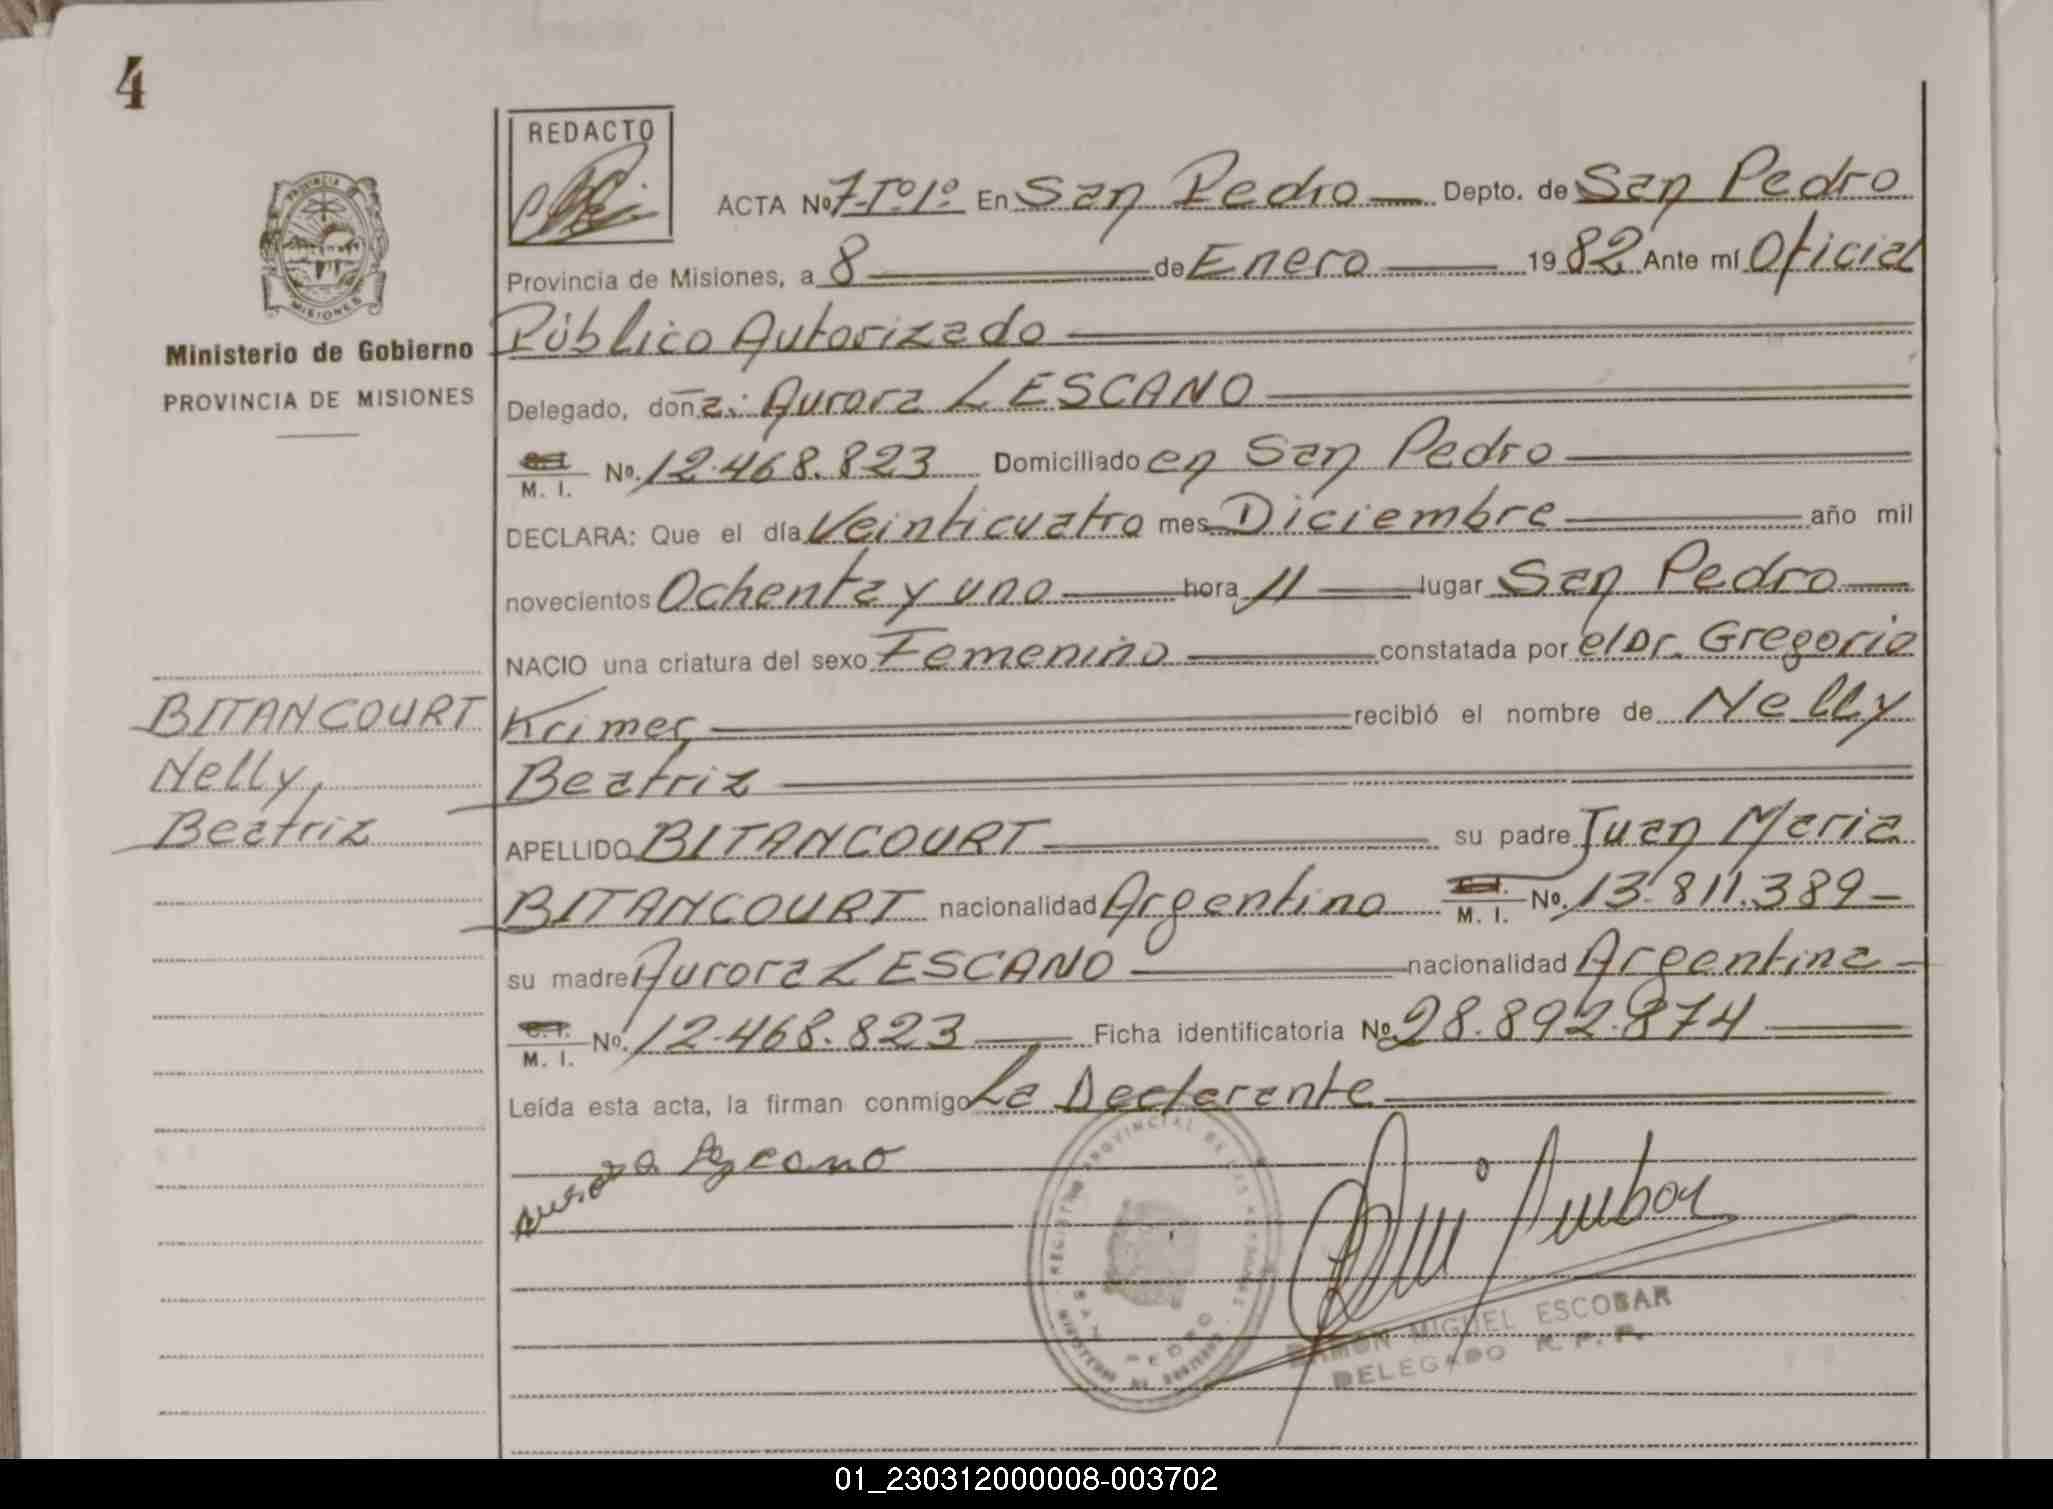 4
REDACTO
PROVINCIA DE
MISIONES
Ministerio de Gobierno
PROVINCIA DE MISIONES
ACTA Nº 7-Tº1º En San Pedro Depto. de San Pedro
Provincia de Misiones, a 8 de Enero 1982 Ante mí Oficial
Público Autorizado
Delegado, doña: Aurora LESCANO
C.I. M. I. Nº. 12.468.823 Domiciliado en San Pedro
DECLARA: Que el día Veinticuatro mes Diciembre año mil
novecientos Ochenta y uno hora 11 lugar San Pedro
NACIO una criatura del sexo Femenino constatada por el Dr. Gregorio
recibió el nombre de Nelly
Beatriz
APELLIDO BITANCOURT su padre Juan Maria
BITANCOURT nacionalidad Argentino C.I. M. I. Nº. 13.811.389
su madre Aurora LESCANO nacionalidad Argentina
C.I. M. I. Nº. 12.468.823 Ficha identificatoria Nº 28.892.874
Leída esta acta, la firman conmigo La Declarante
BITANCOURT
Nelly,
Beatriz
REGISTRO PROVINCIAL DE LAS PERSONAS
SAN PEDRO
MINISTERIO DE GOBIERNO
RAMON MIGUEL ESCOBAR
DELEGADO R. P. P.
01_230312000008-003702